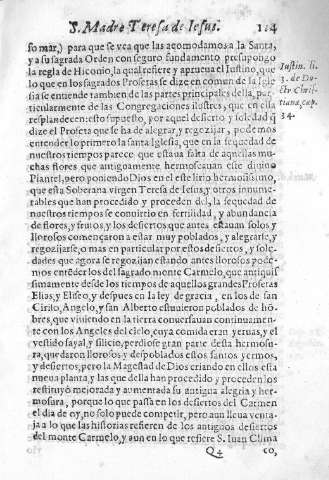 S. Madre Teresa de Iesus. 124
so mar,) para que se vea que las acomodamos a la Santa,
y a su sagrada Orden con seguro fundamento presupongo
la regla de Hiconio, la qual refiere y aprueua el Iustino, que
lo que en los sagrados Profetas se dize en comun de la Igle
sia se entiende tambien de las partes principales della, par
ticularmente de las Congregaciones ilustres, que en ella
resplandecen: esto supuesto, por aquel desierto y soledad q̃
dize el Profeta que se ha de alegrar, y regozijar, podemos
entender lo primero la santa Iglesia, que en la sequedad de
nuestros tiempos parece que estaua falta de aquellas
muchas flores que antiguamente hermoseauan este diuino
Plantel, pero poniendo Dios en el este lirio hermosissimo,
que esta Soberana virgen Teresa de Iesus, y otros innume
rables que han procedido y proceden del, la sequedad de
nuestros tiempos se conuirtio en fertilidad, y abundancia
de flores, y frutos, y los desiertos que antes estauan solos y
llorosos començaron a estar muy poblados, y alegrarse, y
regozijarse, o mas en particular por estos desiertos, y sole-
dades que agora se regozijan estando antes llorosos pode-
mos entẽder los del sagrado monte Carmelo, que antiquis
simamente desde los tiempos de aquellos grandes Profetas
Elias, y Eliseo, y despues en la ley de gracia, en los de san
Cirilo, Angelo, y san Alberto estuuieron poblados de hõ-
bres, que viuiendo en la tierra conuersauan continuamen-
te con los Angeles del cielo, cuya comida eran yeruas, y el
vestido sayal, y silicio, perdiose gran parte desta hermosu-
ra, quedaron llorosos y despoblados estos santos yermos,
y desiertos, pero la Magestad de Dios criando en ellos esta
nueua planta, y las que della han procedido y proceden los
restituyò mejorada y aumentada su antigua alegria y her-
mosura, porque lo que passa en los desiertos del Carmen
el dia de oy, no solo puede competir, pero aun lleua venta-
ja a lo que las historias refieren de los antiguos desiertos
del monte Carmelo, y aun en lo que refiere S. Iuan Clima
Q4 co,
Iustin. li.
3. de Do-
ctr Christ-
tiana, cap.
34.